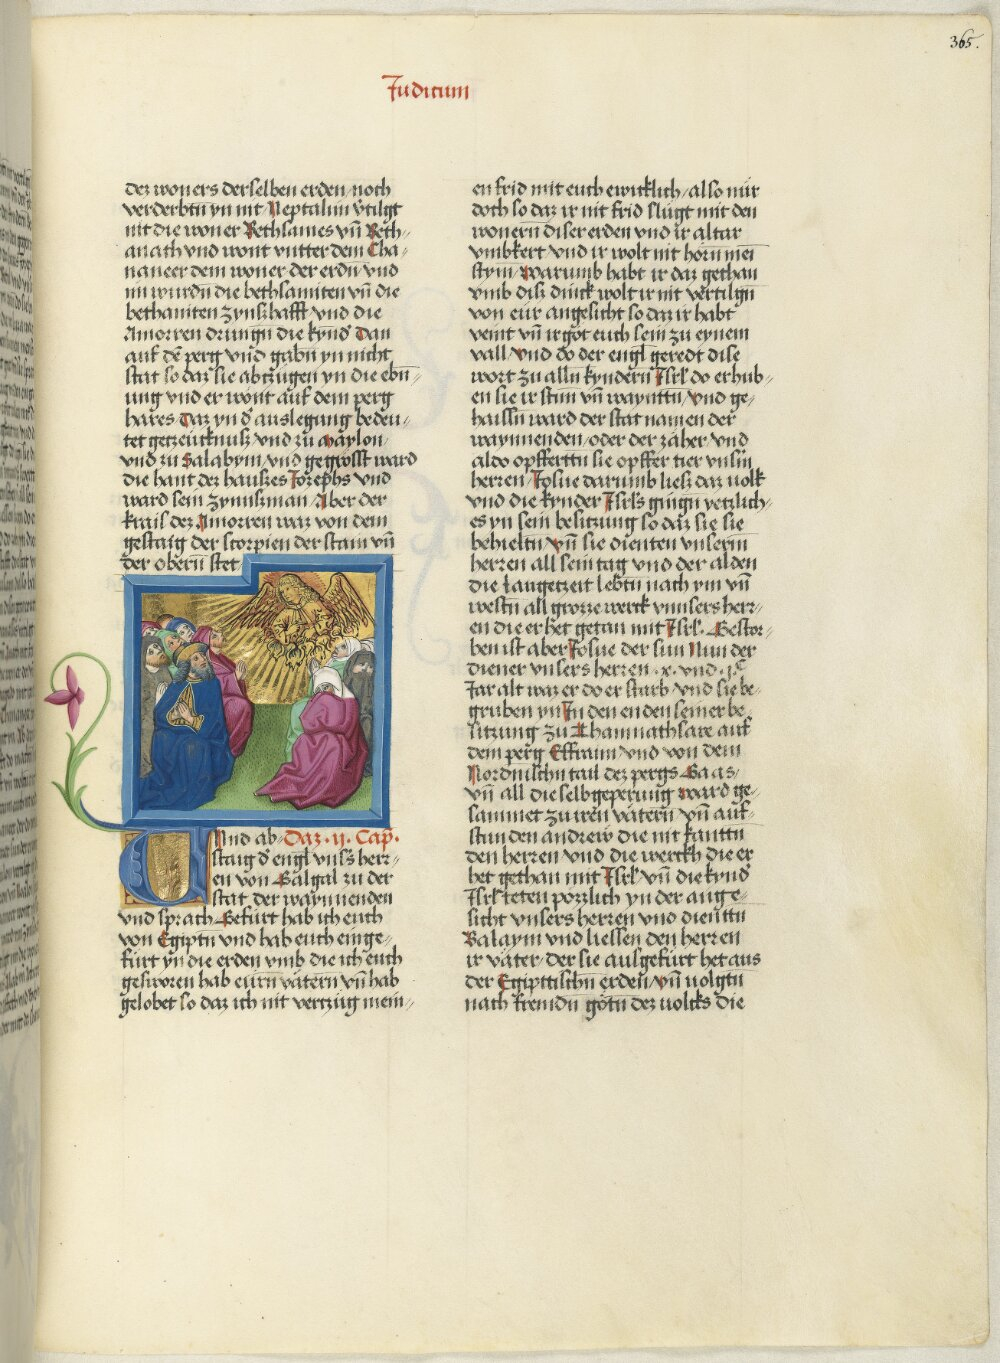 365.
Juditum
der woners derselben erden / noch
verderbtn yn nit / Neptalim v̈tilgt
nit die woner Bethsames vnd̄ Beth-
anath vnd wont vntter dem Cha-
naneer dem woner der erdn̄ vnd
im wurdn̄ die bethsamiten vn̄ die
bethaniten zynszhafft / vnd die
Amorren drungn̄ die kynd̄ Dan
auf dē perg vnd gabn̄ yn nicht
stat so daz sie abtzugen yn die ebn̄-
ung vnd er wont auf dem perg
hares Daz yn d̄ auslegung bedeu-
tet getzeucknusz / vnd zu haylon /
vnd zu Salabym / vnd gegrosst ward
die hant dez hauszes Josephs vnd
ward sein zynnszman / Aber der
krais dez Amorren waz von dem
gestaig der scorpien der stain vn̄
der obern̄ stet /
Und ab- Daz .ij. Cap̄.
staig d̄ engl vns̄s herr-
en von Galgal zu der
stat der waynnenden
vnd sprach Gefürt hab ich euch
von Egiptn̄ vnd hab euch einge-
fürt yn die erden vmb die ich euch
gesworen hab eurn̄ vätern̄ vn̄ hab
gelobet so daz ich nit vertzüg mein-
en frid mit euch ewicklich / also nür
doch so daz ir nit frid slügt mit den
wonern diser erden vnd ir altar
vmbkert vnd ir wolt nit hörn̄ mei
stym / Warumb habt ir daz gethan
vmb disz dinck wolt ir nit vertilgn̄
von eur angesicht so daz ir habt
veint vn̄ ir got euch sein zu eynem
vall / Vnd do der engl geredt dise
wort zu alln̄ kyndern̄ Isrl̄ do erhub-
en sie ir stim vn̄ wayntn̄ / vnd ge-
haissn̄ ward der stat namen der
waynnenden / oder der zäher vnd
aldo opffertn̄ sie opffer tier vnsm̄
herren / Josue darumb liesz daz volk
vnd die kynder Isrl̄s gingn̄ yetzlich-
es yn sein besitzung so daz sie sie
behieltn̄ / vn̄ sie dienten vnserm
herren all sein tag vnd der alden
die langetzeit lebtn̄ nach ym vn̄
westn̄ all grosze werck vnnsers herr-
en die er het getan mit Isrl̄. Gestor-
ben ist aber Josue der sun Nun der
diener vnsers herren .x. vnd .jᶜ
Jar alt waz er do er starb vnd sie be-
gruben yn In den enden seiner be-
sitzung zu Thamnathsare auf
dem perg Effraim / vnd von dem
Nordnischn̄ tail dez pergs Gaas /
vn̄ all die selb geperung ward ge-
sammet zu iren vätern̄ vn̄ auf-
stunden andrew die nit kantn̄
den herren vnd die werckh die er
het gethan mit Isrl̄ / vn̄ die kynd̄
Isrl̄ teten pözzlich yn der ange-
sicht vnsers herren vnd dientn̄
Balaym vnd liessen den herren
ir väter / der sie aufgefürt het aus
der Egipttischn̄ erden / vn̄ volgtn̄
nach fremdn̄ götn̄ dez volcks die